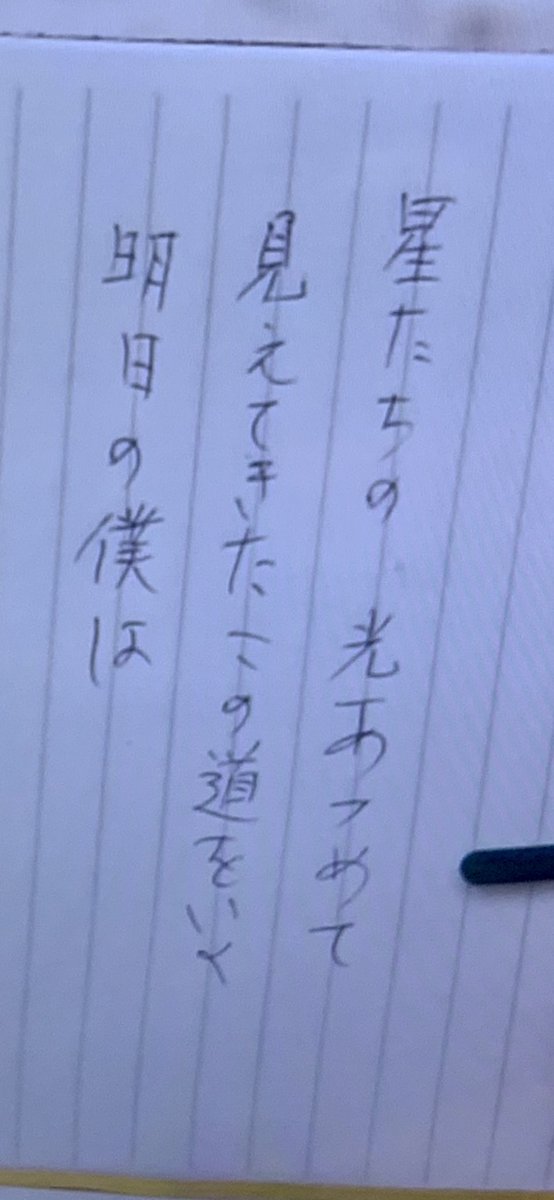 星たちの 光あつめて
見えてきたこの道をいく
明日の僕は